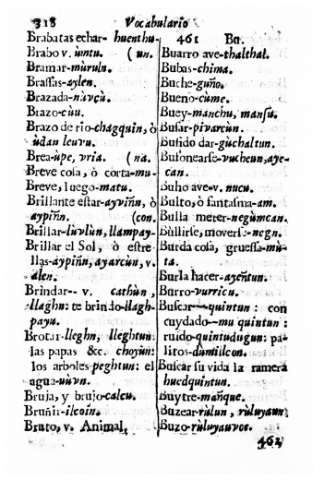 318 Vocabulario
Brabatas echar- huenthu-
Brabo v. ùmtu. (un.
Bramar-mùruln.
Brassas-aylen.
Brazada-nùvcù.
Brazo-cùu.
Brazo de rio-chagquin, ò
ùdan leuvu.
Brea-ùpe, vria. (na.
Breve cosa, ò corta-mu-
Breve, luego-matu.
Brillante estar-ayviñn, ò
aypiñn. (con.
Brillar-lùvlùn, llampay-
Brillar el Sol, ò estre
llas-aypiñn, ayarcùn, v.
alen.
Brindar-- v. cathùn,
llaghn: te brindo-llagh-
payu.
Brotar-lleghn, lleghtun:
las papas &c. choyùn:
los arboles-peghtun: el
agua-uùvn.
Bruja, y brujo-calcu.
Bruñir-ilcoin.
Bruto, v. Animal,
461 Bu.
Buarro ave-thalthal.
Bubas-chima.
Buche-guño.
Bueno-cùme.
Buey-manchu, mansu.
Bufar-pivarcùn.
Bufido dar-gùchaltun.
Bufonearse-vucheun, aye-
can.
Buho ave-v. nucu.
Bulto, ò fantasma-am.
Bulla merer-negùmcan.
Bùllirse, moverse-negn.
Burda cosa, gruessa-mù-
ta.
Burla hacer-ayentun.
Burro-vurricu.
Buscar-quintun: con
cuydado-mu quintun:
ruido-quintudugun: pa-
litos-dùmilcon.
Buscar su vida la ramera
huedquintun.
Buytre-mañque.
Buzear-rùlun, rùluyaun
Buzo-rùluyauvoe.
462